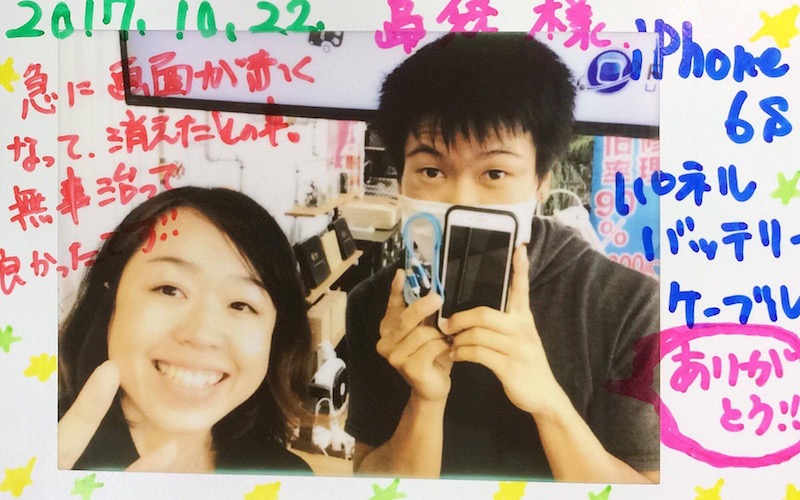 2017.10.22.
様.
急に画面が赤く
なって、消えたとの事。
無事治って
良かったです!!
iPhone
6S
パネル
バッテリー
ケーブル
ありが
とう!!
修理
率
%